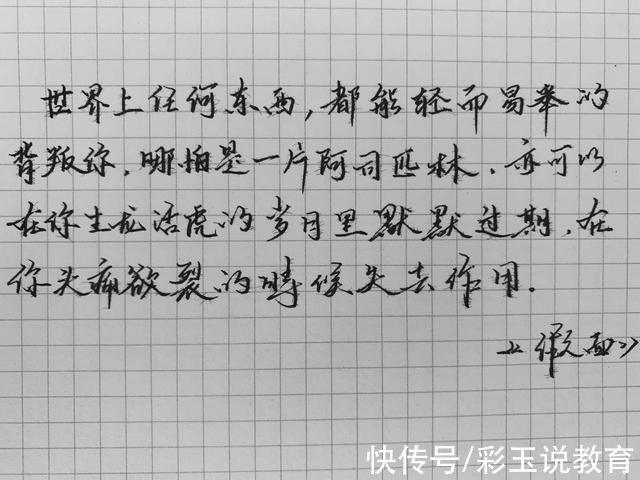 世界上任何东西,都能轻而易举的
背叛你,哪怕是一片阿司匹林,亦可以
在你生龙活虎的岁月里默默过期,在
你头痛欲裂的時候失去作用。
《假面》
快传号/彩玉说教育